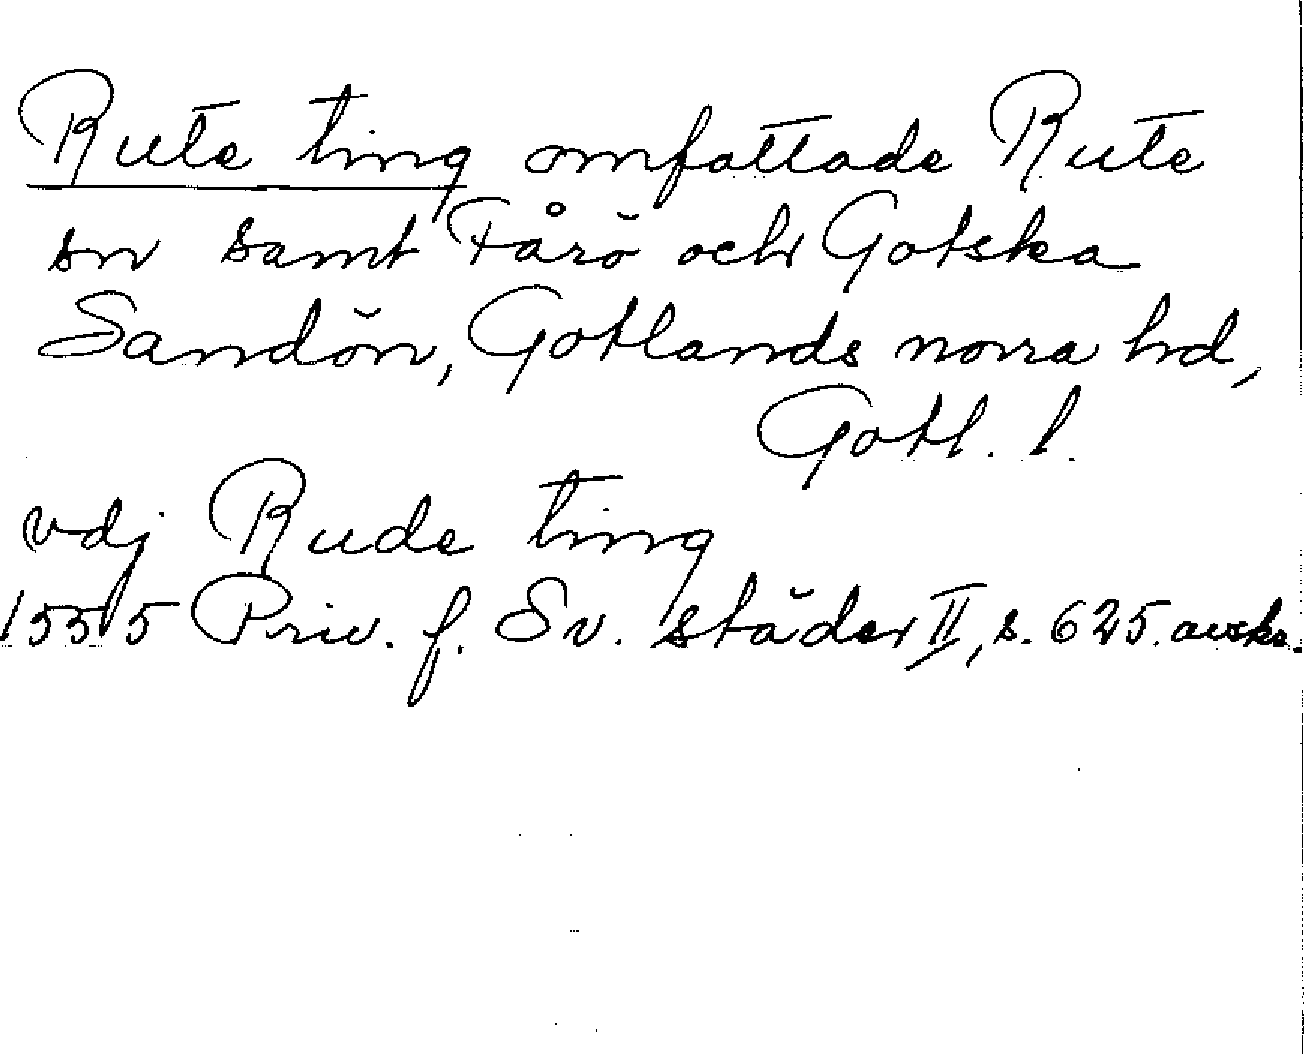 Rute ting omfattade Rute
sn samt Fårö och Gotska
Sandön, Gotlands norra hd,
Gotl. l.
vdj Rude ting
1555 Priv. f. Sv. städer II, s. 625. avskr.